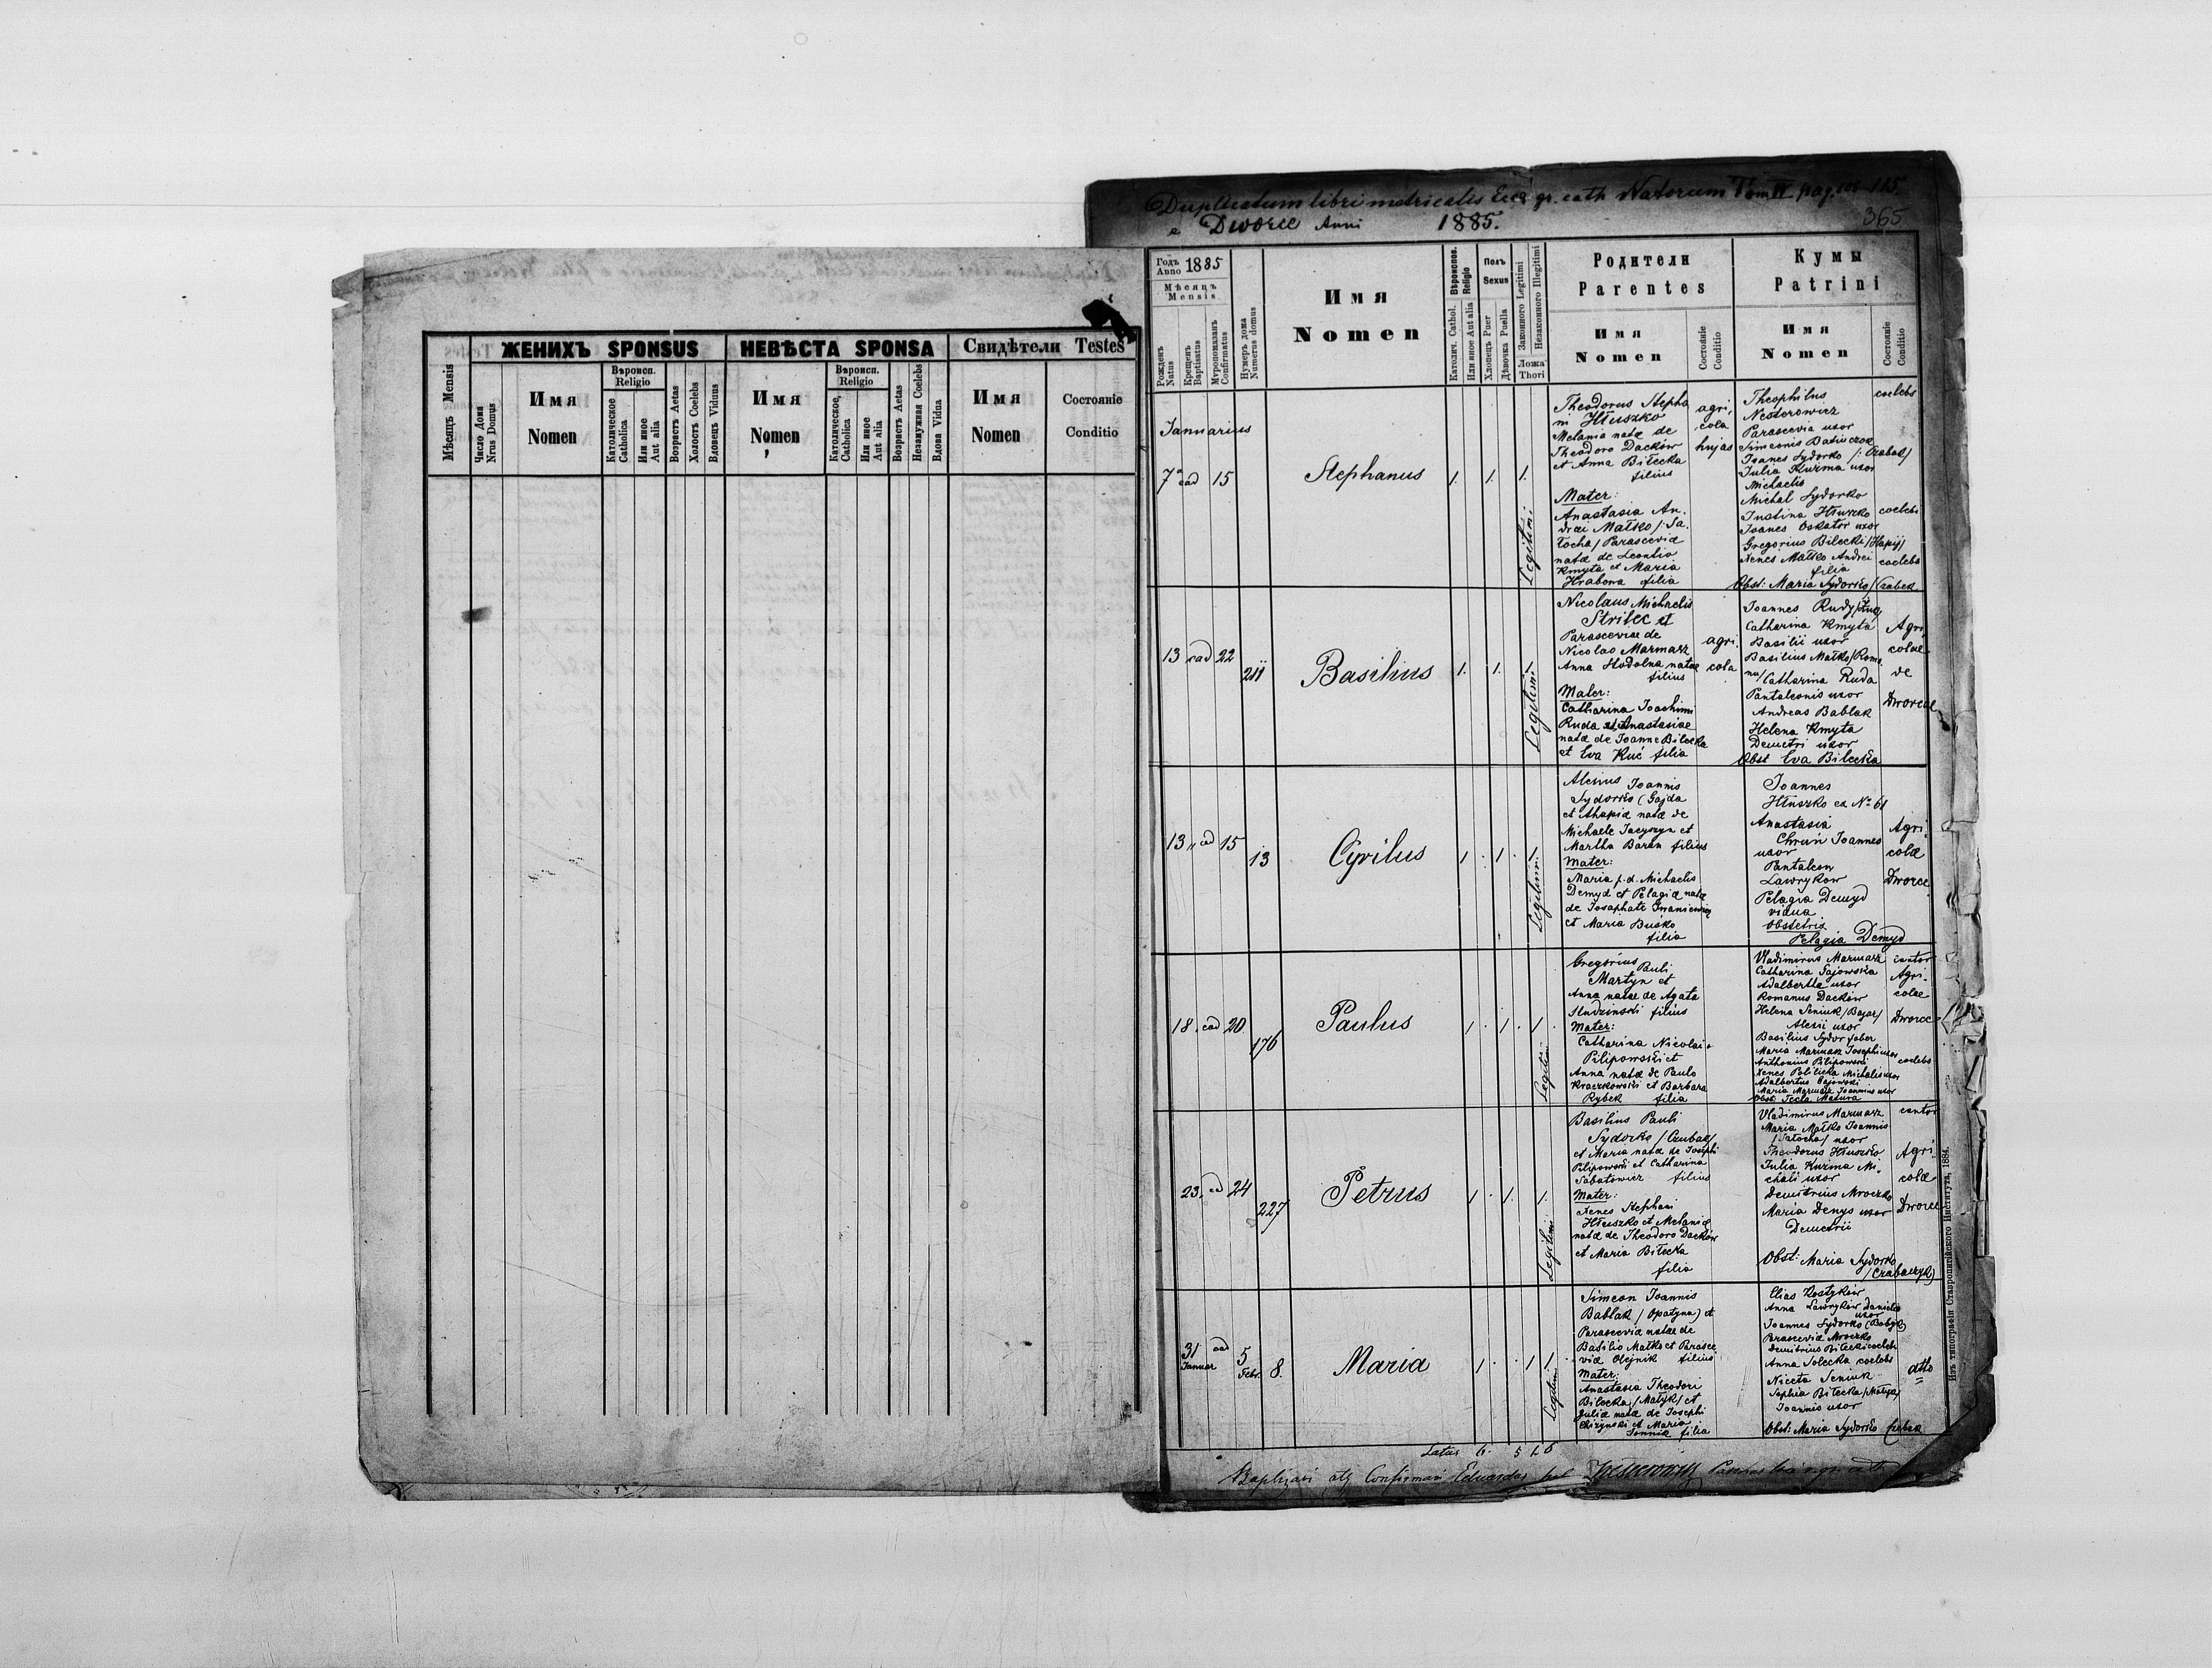 Duplicatum libri metricalis Eccę gr. cath Natorum Tom IV pag.
e Dworce Anni 1885.
365
ЖЕНИХЪ SPONSUS
НЕВѢСТА SPONSA
Свидѣтели Testes
Мѣсяцъ Mensis
Число Дома
Nrus Domus
Имя
Nomen
Вѣроисп.
Religio
Католическое
Catholica
Или иное
Aut alia
Возрастъ Aetas
Холостъ Coelebs
Вдовецъ Viduus
Имя
Nomen
Вѣроисп.
Religio
Католическое,
Catholica
Или иное
Aut alia
Возрастъ Aetas
Незамужная Coelebs
Вдова Vidua
Имя
Nomen
Состояніе
Conditio
Годъ
Anno 1885
Мѣсяцъ
Mensis
Рожденъ
Natus
Крещенъ
Baptisatus
Мvропомазанъ
Confirmatus
Нумеръ дома
Numerus domus
Имя
Nomen
Вѣроиспов.
Religio
Католич. Cathol.
Или иное Aut alia
Полъ
Sexus
Хлопецъ Puer
Дѣвочка Puella
Законного Legitimi
Незаконного Illegitimi
Ложа
Thori
Родители
Parentes
Имя
Nomen
Состояніе
Conditio
Кумы
Patrini
Имя
Nomen
Состояніе
Conditio
Januarius
7 ead 15
Stephanus
1. 1. 1.
Legitimi
Theodorus Stepha
ni Hłuszko
Melania natæ de
Theodoro Dacków
et Anna Biłecka
filius
Mater:
Anastasia An.
drei Małko /: Sa.
łocha/ Parasceviæ
natæ de Leontio
Kmyta et Maria
Hrabowa filia
agri.
cola
hujas
Theophilus
Nesterowicz
Parascevia uxor
Simeonis
Joanes Sydorko
Julia Kuzma uxor
Michaelis
Michal Sydorko
Justina Hłuszko
Joanes uxor
Gregorius Bilecki /Hapij/
Xenes Małko Andrei
filia
Obst: Maria Sydorko /Czabek
coelebs
coelebs
coelebs
13 ead 22
211
Basilius
1. 1. 1
Legitimi
Nicolaus Michaelis
Strilec et
Parasceviæ de
Nicolao Marmarz
Anna Hodolna natæ
filius
Mater:
Catharina Joachimi
Ruda et Anastasiae
natæ de Joanne Bilecka
et Eva Kuć filia
agri.
cola
Joannes Rudy
Catharina Kmyta
Basilii uxor
Basilius Małko/Roma
na/ Catharina Ruda
Pantaleonis uxor
Andreas Bablak
Helena Kmyta
Demetri uxor
Obst Eva Bilecka
Agri.
colae
de
Dworce
13 „ ead 15
13
Cyrilus
1 . 1 . 1
Legitimi
Alexius Joannis
Sydorko (Gajda
et Ahapiæ natæ de
Michaele Jacyszyn et
Martha Baran filius
Mater:
Maria p.d. Michaelis
Demyd et Pelagiæ natæ
de Josaphate Iwaniewicz
et Maria Buśko
filia
Joannes
Hłuszko ex No 61
Anastasia
Chruń Joannes
uxor
Pantaleon
Lawrykow
Pelagia Demyd
vidua
Obstetrix
Pelagia Demyd
Agri.
colæ
Dworce
18. ead 20
176
Paulus
1 . 1 . 1 .
Legitimi
Gregorius Pauli
Martyn et
Anna natæ de Agata
Studzinski filius
Mater:
Catharina Nicolai
Pilipowski et
Anna natæ de Paulo
Kraczkowski et Barbara
Rybek filia
Vladimirus Marmarz
Catharina Gajowska
Adalberta uxor
Romanus Dacków
Helena Seniuk /Bojar/
Alexii uxor
Basilius Sydor faber
Maria Marmarz Josephi uxor
Anthonius Pilipowski
Xenes Michalis uxor
Adalbertus Gajowski
Maria Marmarz Joannius uxor
Obst Tecla Matura
cantor
Agri-
colae
Dworce
coelebs
23. ead 24
227
Petrus
1 . 1. 1.
Legitimi
Basilius Pauli
Sydorko /Czubak/
et Maria natæ de Josephi
Pilipowski et Catharina
Sabatowicz filius
Mater:
Xenes Stephani
Hłuszko et Melaniæ
natæ de Theodoro Dacków
et Maria Biłecka
filia
Vladimirus Marmarz
Maria Małko Joannis
/Satocha/ uxor
Theodorus Hłuszko
Julia Kuzma Mi.
chali uxor
Demitrius Mroczko
Maria Denys uxor
Demetrii
Obst: Maria Sydorko
cantor
Agri.
colæ
Dworce
31 ead 5
Januar Febr. 8.
Maria
1 . . 1 1 .
Legitimi
Simeon Joannis
Bablak / Opatyna) et
Parasceviæ natæ de
Basilio Małko et Parasce
viæ Olejnik filius
Mater:
Anastasia Theodori
Bilecka /Matyk/ et
Juliæ natæ de Josephi
Chizynski et Maria
Sonnik filia
Elias Kostyków
Anna Lawryków Danielis
uxor
Joannes Sydorko (Bobyk)
Parascevia Mroczko
Demitrius Bilecki coelebs
Anna Solecka coelebs
Niceta Seniuk
Sophia Biłecka /Matyk/
Joannis uxor
Obst: Maria Sydorko Czabak
dtto
=
Latus 6. 5 1. 6
Baptizavi atq Confirmavi Eduardus
Изъ типографіи Ставропигійского Института, 1884.